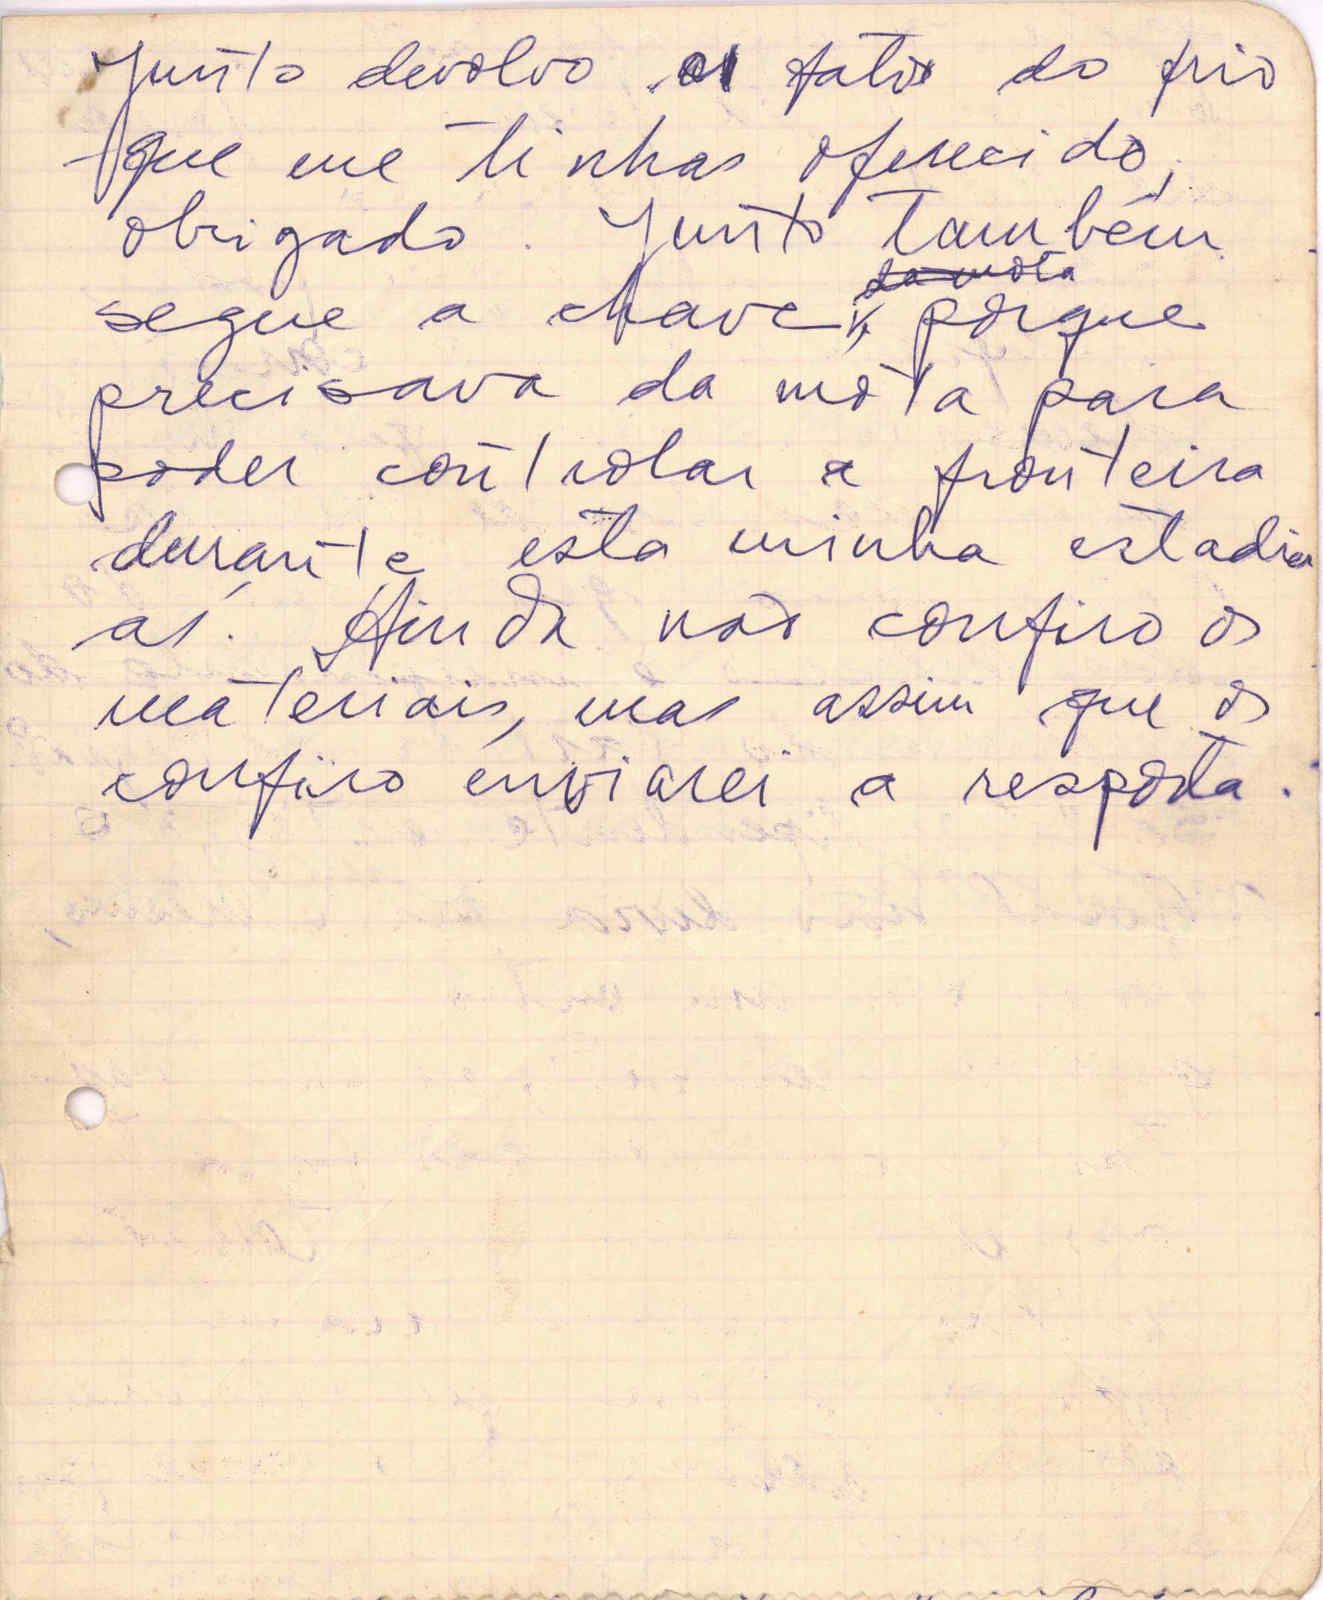 Junto devolvo os fatos do frio
que me tinhas oferecido,
obrigado. Junto também
da mota
segue a chave, porque
precisava da mota para
poder controlar a fronteira
durante esta minha estadia
aí. Ainda não confiro os
materiais, mas assim que os
confiro enviarei a resposta.